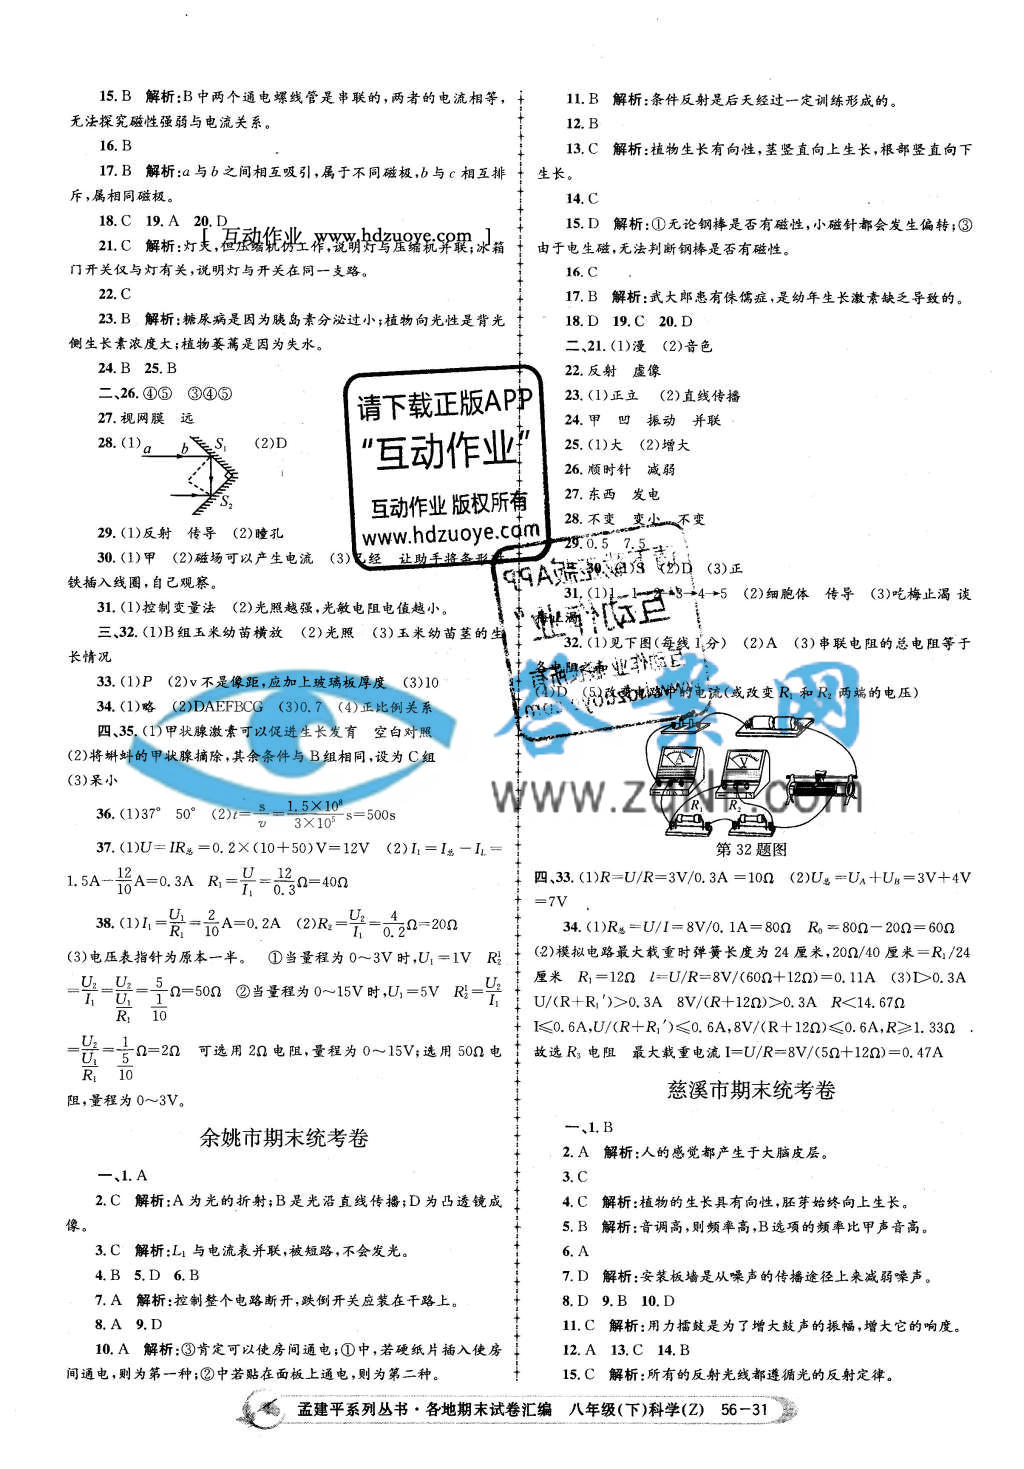 15. B 解析:B中两个通电螺线管是串联的,两者的电流相等,
无法探究磁性强弱与电流关系。
16. B
17. B 解析:a与b之间相互吸引,属于不同磁极,b与c相互排
斥,属相同磁极。
18. C 19. A 20. D
[ 互动作业 www.hdzuoye.com ]
21. C 解析:灯灭,但压缩机仍工作,说明灯与压缩机并联;冰箱
门开关仅与灯有关,说明灯与开关在同一支路。
22. C
23. B 解析:糖尿病是因为胰岛素分泌过小;植物向光性是背光
侧生长素浓度大;植物萎蔫是因为失水。
24. B 25. B
二、26. ④⑤ ③④⑤
27. 视网膜 远
28. (1) a b S₁ S₂ (2)D
29. (1)反射 传导 (2)瞳孔
30. (1)甲 (2)磁场可以产生电流 (3)已经 让助手将条形
铁插入线圈,自己观察。
31. (1)控制变量法 (2)光照越强,光敏电阻电值越小。
三、32. (1)B组玉米幼苗横放 (2)光照 (3)玉米幼苗茎的生
长情况
33. (1)P (2)v不是像距,应加上玻璃板厚度 (3)10
34. (1)略 (2)DAEFBCG (3)0.7 (4)正比例关系
四、35. (1)甲状腺激素可以促进生长发育 空白对照
(2)将蝌蚪的甲状腺摘除,其余条件与B组相同,设为C组
(3)呆小
36. (1)37° 50° (2)t=s/v=1.5×10⁸/3×10⁵ s=500s
37. (1)U=IR总=0.2×(10+50)V=12V (2)I₁=I总-I_L=
1.5A-12/10A=0.3A R₁=U/I₁=12/0.3Ω=40Ω
38. (1)I₁=U₁/R₁=2/10A=0.2A (2)R₂=U₂/I₁=4/0.2Ω=20Ω
(3)电压表指针为原本一半。 ①当量程为0~3V时,U₁=1V R₂¹
=U₂/I₁=U₂/(U₁/R₁)=5/(1/10)Ω=50Ω ②当量程为0~15V时,U₁=5V R₂¹=U₂/I₁
=U₂/(U₁/R₁)=1/(5/10)Ω=2Ω 可选用2Ω电阻,量程为0~15V;选用50Ω电
阻,量程为0~3V。
余姚市期末统考卷
一、1. A
2. C 解析:A为光的折射;B是光沿直线传播;D为凸透镜成
像。
3. C 解析:L₁与电流表并联,被短路,不会发光。
4. B 5. D 6. B
7. A 解析:控制整个电路断开,跌倒开关应装在干路上。
8. A 9. D
10. A 解析:③肯定可以使房间通电;①中,若硬纸片插入使房
间通电,则为第一种;②中若贴在面板上通电,则为第二种。
11. B 解析:条件反射是后天经过一定训练形成的。
12. B
13. C 解析:植物生长有向性,茎竖直向上生长,根部竖直向下
生长。
14. C
15. D 解析:①无论钢棒是否有磁性,小磁针都会发生偏转;③
由于电生磁,无法判断钢棒是否有磁性。
16. C
17. B 解析:武大郎患有侏儒症,是幼年生长激素缺乏导致的。
18. D 19. C 20. D
二、21. (1)漫 (2)音色
22. 反射 虚像
23. (1)正立 (2)直线传播
24. 甲 凹 振动 并联
25. (1)大 (2)增大
26. 顺时针 减弱
27. 东西 发电
28. 不变 变小 不变
29. 0.5 7.5
三、30. (1)S (2)D (3)正
31. (1)1→2→3→4→5 (2)细胞体 传导 (3)吃梅止渴 谈
梅止渴
32. (1)见下图(每线1分) (2)A (3)串联电阻的总电阻等于
各电阻之和
(4)D (5)改变电路中的电流(或改变R₁和R₂两端的电压)
A V
R₁ R₂
第32题图
四、33. (1)R=U/R=3V/0.3A=10Ω (2)U总=U_A+U_B=3V+4V
=7V
34. (1)R总=U/I=8V/0.1A=80Ω R₀=80Ω-20Ω=60Ω
(2)模拟电路最大载重时弹簧长度为24厘米,20Ω/40厘米=R₁/24
厘米 R₁=12Ω I=U/R=8V/(60Ω+12Ω)=0.11A (3)I>0.3A
U/(R+R₁′)>0.3A 8V/(R+12Ω)>0.3A R<14.67Ω
I≤0.6A,U/(R+R₁′)≤0.6A,8V/(R+12Ω)≤0.6A,R≥1.33Ω
故选R₃电阻 最大载重电流I=U/R=8V/(5Ω+12Ω)=0.47A
慈溪市期末统考卷
一、1. B
2. A 解析:人的感觉都产生于大脑皮层。
3. C
4. C 解析:植物的生长具有向性,胚芽始终向上生长。
5. B 解析:音调高,则频率高,B选项的频率比甲声音高。
6. A
7. D 解析:安装板墙是从噪声的传播途径上来减弱噪声。
8. D 9. B 10. D
11. C 解析:用力擂鼓是为了增大鼓声的振幅,增大它的响度。
12. A 13. C 14. B
15. C 解析:所有的反射光线都遵循光的反射定律。
请下载正版APP
“互动作业”
互动作业 版权所有
www.hdzuoye.com
答案网
www.zqnf.com
孟建平系列丛书·各地期末试卷汇编 八年级(下)科学(Z) 56-31